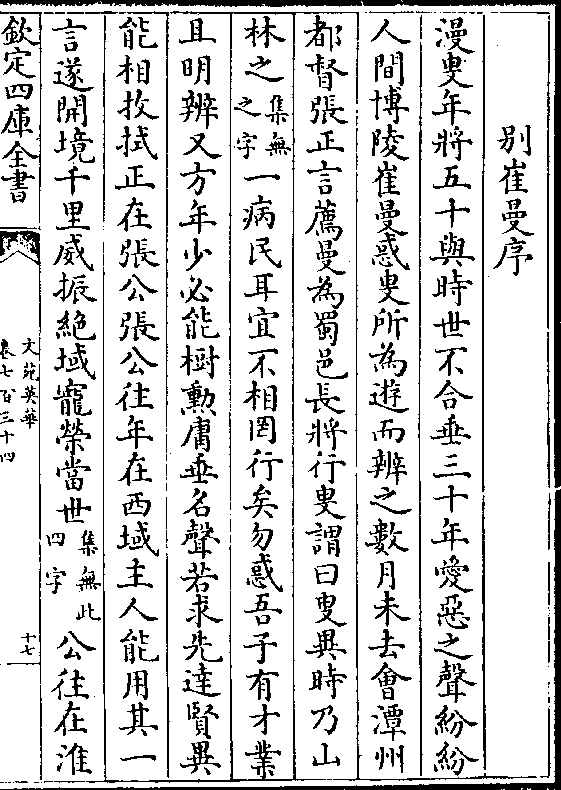 别崔曼序
漫叟年將五十與時世不合垂三十年愛惡之聲紛紛
人間博陵崔曼惑叟所為遊而辨之數月未去會潭州
都督張正言薦曼為蜀邑長將行叟謂曰叟異時乃山
林之集無之字一病民耳宜不相罔行矣勿惑吾子有才業
且明辨又方年少必能樹勳庸垂名聲若求先達賢異
能相扠拭正在張公張公往年在西域主人能用其一
言遂開境千里威振絶域寵榮當世集無此四字公往在淮
欽定四庫全書
文苑英華
卷七百三十四
十七